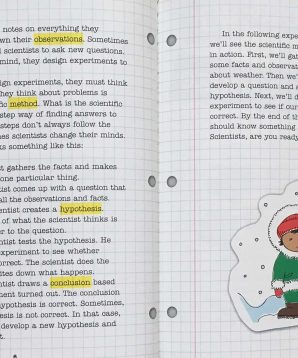 notes on everything they
own their observations. Sometimes
scientists to ask new questions.
mind, they design experiments to
ign experiments, they must think
they think about problems is
fic method. What is the scientific
step way of finding answers to
steps don't always follow the
nes scientists change their minds.
ks something like this:
st gathers the facts and makes
one particular thing.
tist comes up with a question that
all the observations and facts.
entist creates a hypothesis.
of what the scientist thinks is
er to the question.
ntist tests the hypothesis. He
xperiment to see whether
orrect. The scientist does the
ites down what happens.
entist draws a conclusion based
ment turned out. The conclusion
ypothesis is correct. Sometimes,
esis is not correct. In that case,
develop a new hypothesis and
t.
In the following expe
we'll see the scientific m
in action. First, we'll gat
some facts and observat
about weather. Then we'
develop a question and a
hypothesis. Next, we'll d
experiment to see if our
correct. By the end of th
should know something
Scientists, are you ready